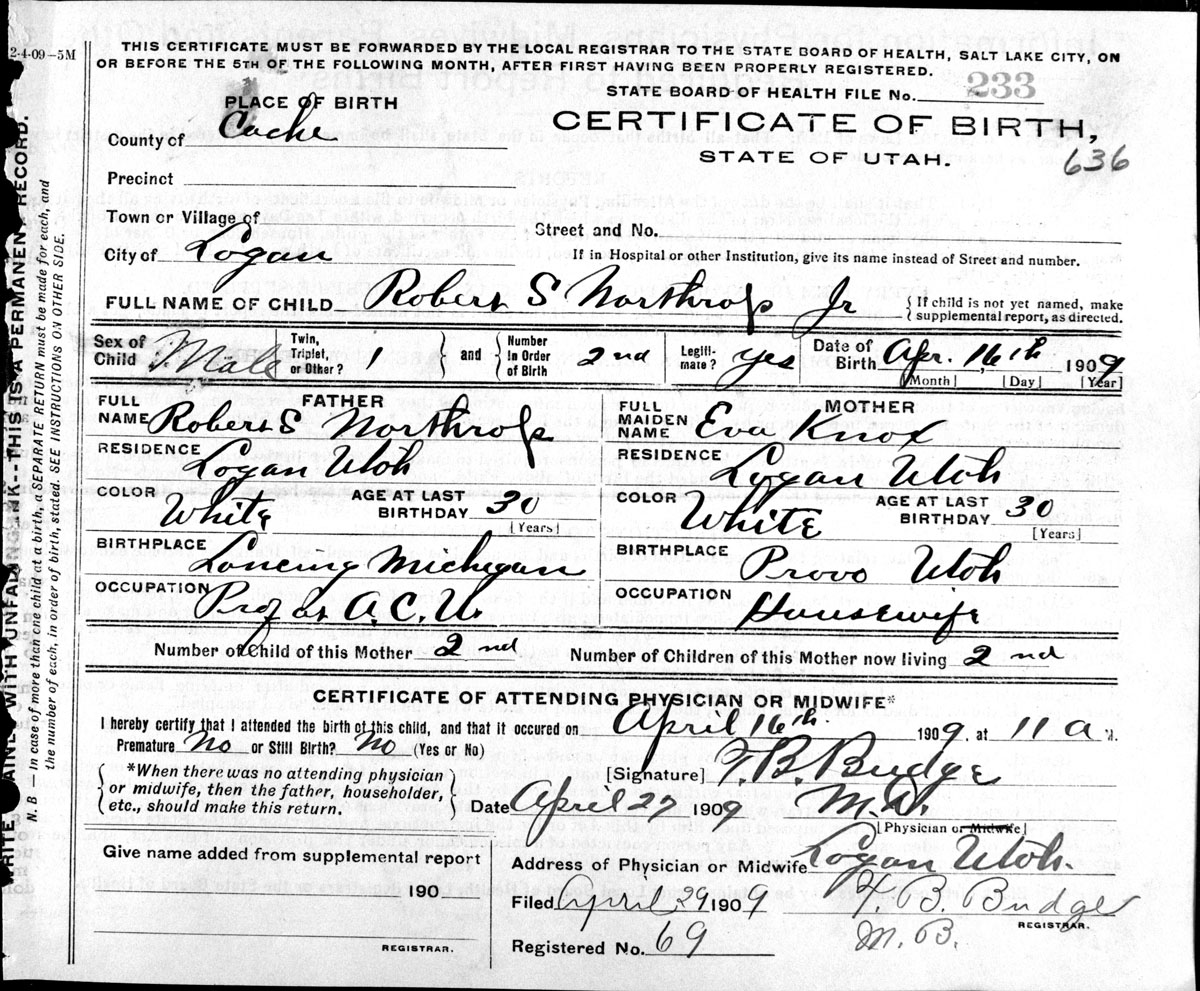 2-4-09-5M
THIS CERTIFICATE MUST BE FORWARDED BY THE LOCAL REGISTRAR TO THE STATE BOARD OF HEALTH, SALT LAKE CITY, ON
OR BEFORE THE 5TH OF THE FOLLOWING MONTH, AFTER FIRST HAVING BEEN PROPERLY REGISTERED.
STATE BOARD OF HEALTH FILE No. 233
PLACE OF BIRTH
CERTIFICATE OF BIRTH,
County of Cache
STATE OF UTAH. 636
Precinct
Town or Village of
Street and No.
City of Logan
If in Hospital or other Institution, give its name instead of Street and number.
FULL NAME OF CHILD Robert S Northrop Jr { If child is not yet named, make supplemental report, as directed.
Sex of Child Male Twin, Triplet, or Other? 1 } and { Number In Order of Birth 2nd Legiti-mate? yes Date of Birth Apr. 16th 1909
[Month] [Day] [Year]
FATHER
FULL NAME Robert S Northrop
RESIDENCE Logan Utah
COLOR White AGE AT LAST BIRTHDAY 30
[Years]
BIRTHPLACE Lancing Michegan
OCCUPATION Prof at A.C.U.
MOTHER
FULL MAIDEN NAME Eva Knox
RESIDENCE Logan Utah
COLOR White AGE AT LAST BIRTHDAY 30
[Years]
BIRTHPLACE Provo Utah
OCCUPATION Housewife
Number of Child of this Mother 2nd Number of Children of this Mother now living 2nd
CERTIFICATE OF ATTENDING PHYSICIAN OR MIDWIFE*
I hereby certify that I attended the birth of this child, and that it occured on April 16th 1909, at 11 a M.
Premature No or Still Birth? No (Yes or No)
{ *When there was no attending physician
or midwife, then the father, householder,
etc., should make this return. }
[Signature] T. B. Budge
Date April 27 1909 M.D.
[Physician or Midwife]
Give name added from supplemental report
190
REGISTRAR.
Address of Physician or Midwife Logan Utah.
Filed April 29 1909 T. B. Budge
REGISTRAR.
Registered No. 69 M. B.
WRITE PLAINLY WITH UNFADING INK--THIS IS A PERMANENT RECORD.
N. B. — In case of more than one child at a birth, a SEPARATE RETURN must be made for each, and
the number of each, in order of birth, stated. SEE INSTRUCTIONS ON OTHER SIDE.